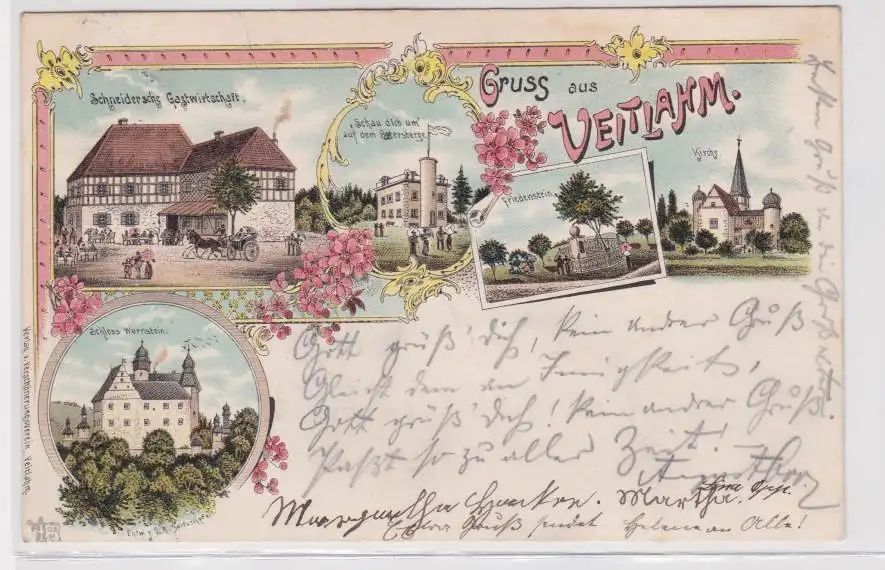 Gruss aus
VEITLAHM.
Schneidersche Gastwirtschaft.
"Schau dich um"
auf dem Patersberge.
Friedenstein.
Kirche
Schloss Wernstein.
Verlag v. Verschönerungsverein. Veitlahm.
Gott grüß' dich, kein andrer Gruß
Gleicht dem an Innigkeit,
Gott grüß' dich! kein andrer Gruß
Paßt so zu aller Zeit! –
Margaretha Martha
Extra Gruß sendet Helene an Alle!